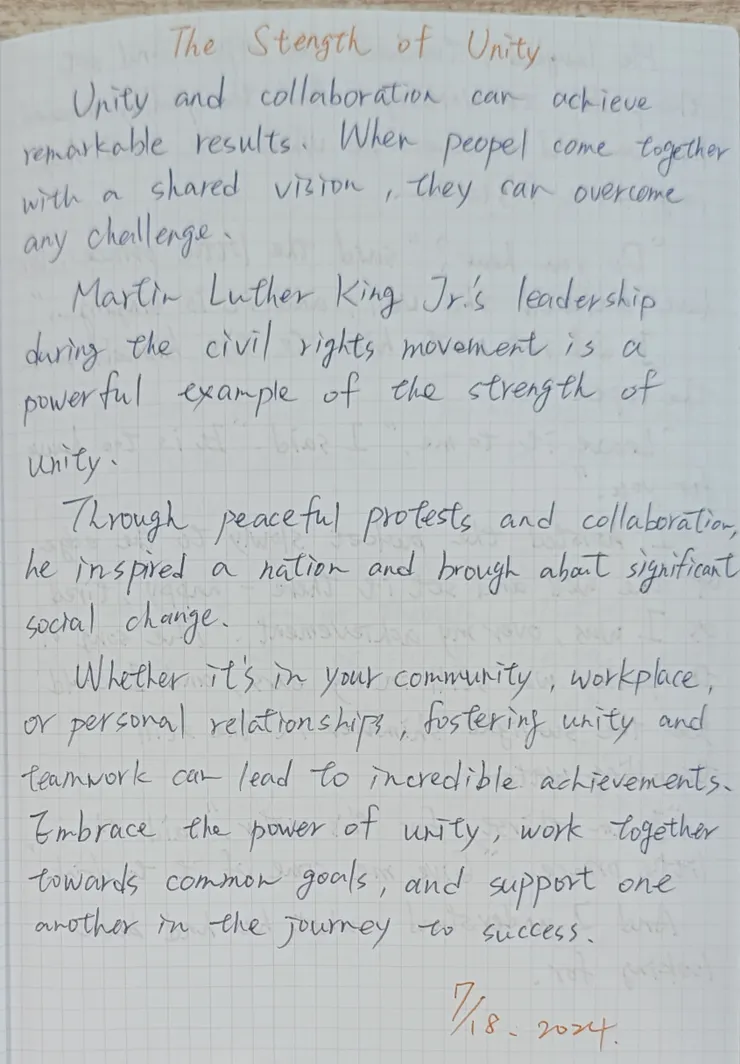 The Stength of Unity.
Unity and collaboration can achieve
remarkable results. When peopel come together
with a shared vision, they can overcome
any challenge.
Martin Luther King Jr.'s leadership
during the civil rights movement is a
powerful example of the strength of
unity.
Through peaceful protests and collaboration,
he inspired a nation and brough about significant
social change.
Whether it's in your community, workplace,
or personal relationships, fostering unity and
teamwork can lead to incredible achievements.
Embrace the power of unity, work together
towards common goals, and support one
another in the journey to success.
7/18. 2024.